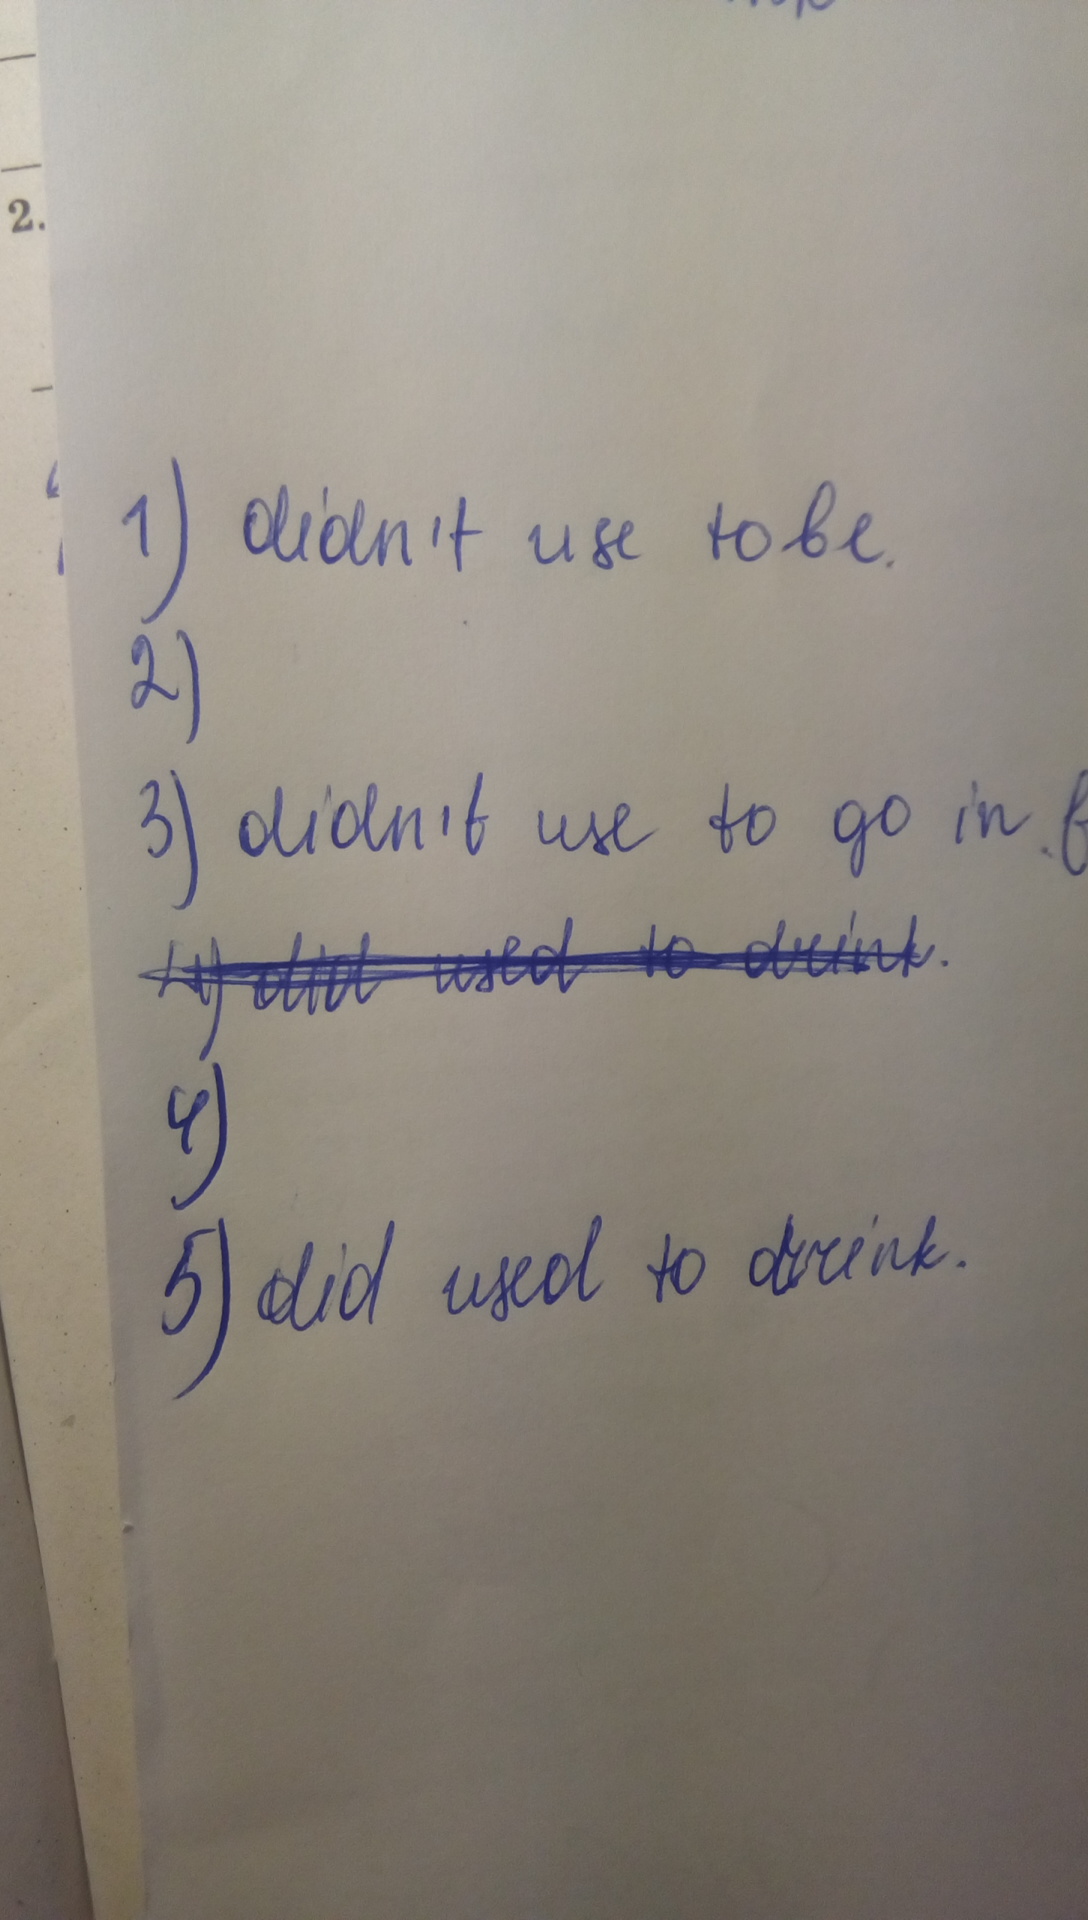 2.
1) didn't use to be.
2)
3) didn't use to go in
4) did used to drink.
4)
5) did used to drink.